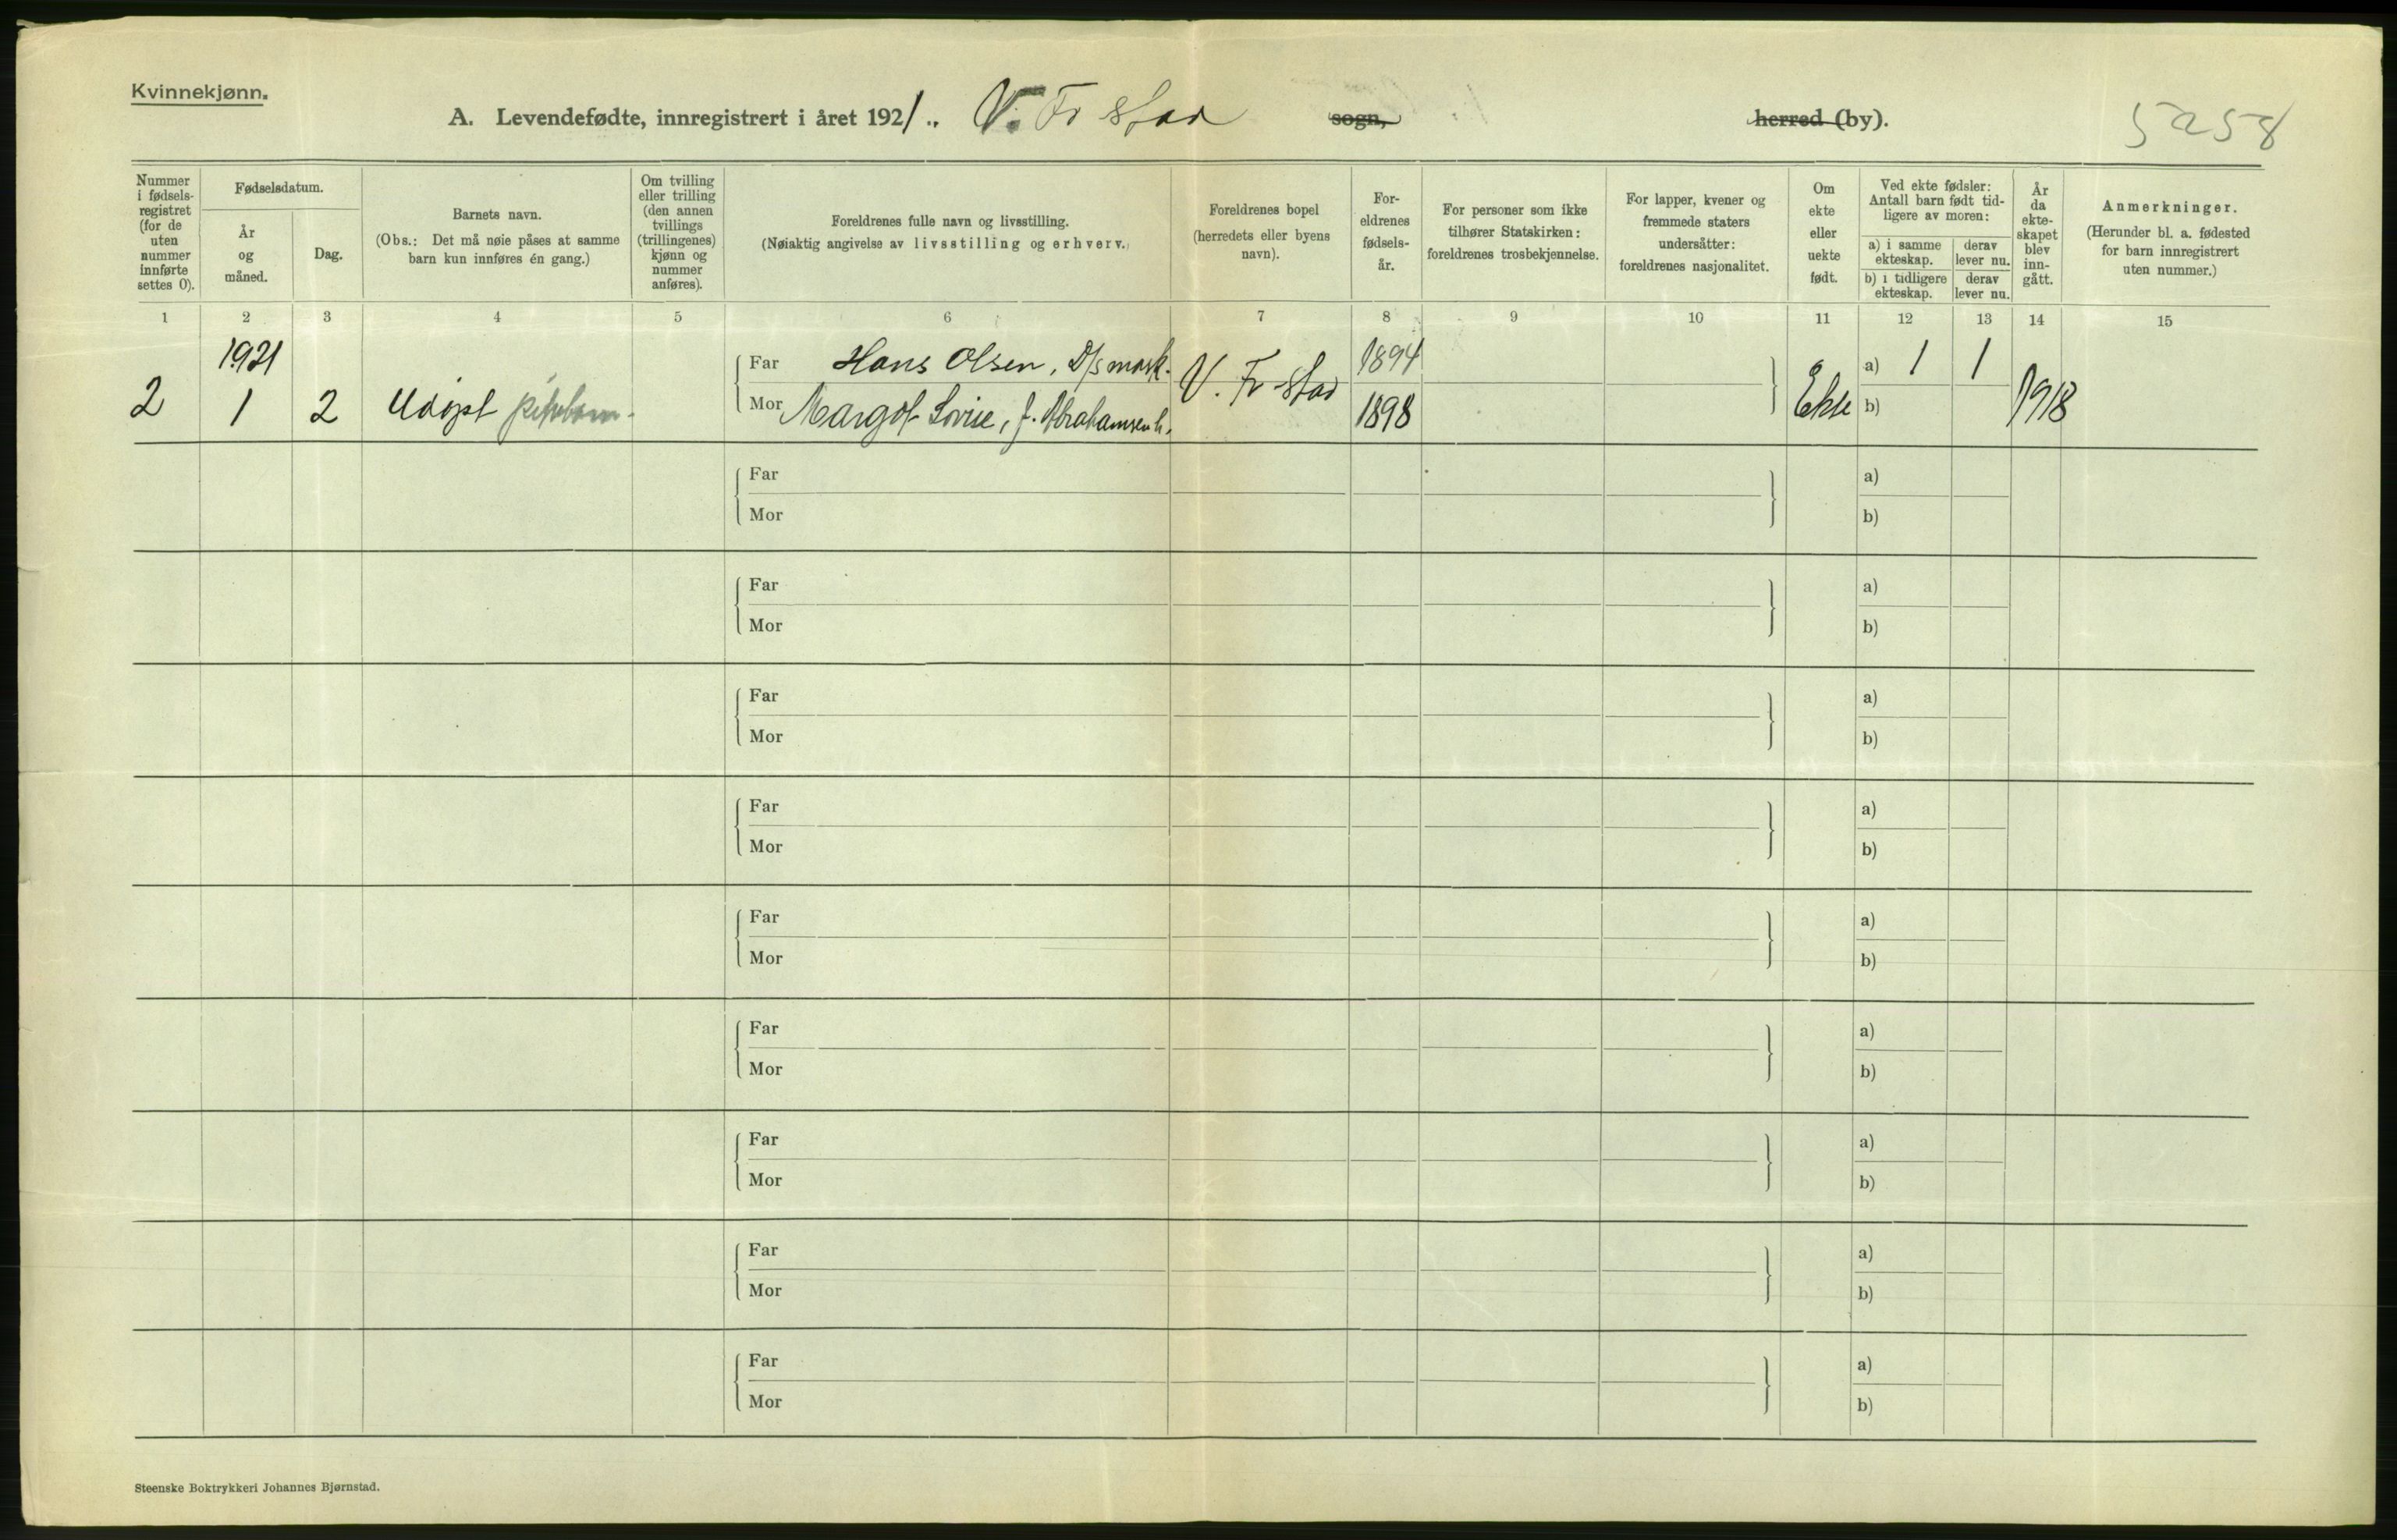 Kvinnekjønn.
A. Levendefødte, innregistrert i året 1921. V. Fr stad sogn, herred (by).
5258
Nummer i fødsels- registret (for de uten nummer innførte settes 0).
Fødselsdatum.
År og måned.
Dag.
Barnets navn.
(Obs.: Det må nøie påses at samme barn kun innføres én gang.)
Om tvilling eller trilling (den annen tvillings (trillingenes) kjønn og nummer anføres).
Foreldrenes fulle navn og livsstilling.
(Nøiaktig angivelse av livsstilling og erhverv.)
Foreldrenes bopel (herredets eller byens navn).
For- eldrenes fødsels- år.
For personer som ikke tilhører Statskirken: foreldrenes trosbekjennelse.
For lapper, kvener og fremmede staters undersåtter: foreldrenes nasjonalitet.
Om ekte eller uekte født.
Ved ekte fødsler: Antall barn født tid- ligere av moren:
a) i samme ekteskap.
derav lever nu.
b) i tidligere ekteskap.
derav lever nu.
År da ekte- skapet blev inn- gått.
Anmerkninger.
(Herunder bl. a. fødested for barn innregistrert uten nummer.)
1 2 3 4 5 6 7 8 9 10 11 12 13 14 15
1921
Far Hans Olsen, D/s mask. V. Fr stad 1894 a) 1 1
2 1 2 Udøpt pikebarn Mor Margot Lovise, f. Abrahamsen h. 1898 Ekte b) 1918
Far a)
Mor b)
Far a)
Mor b)
Far a)
Mor b)
Far a)
Mor b)
Far a)
Mor b)
Far a)
Mor b)
Far a)
Mor b)
Far a)
Mor b)
Far a)
Mor b)
Steenske Boktrykkeri Johannes Bjørnstad.